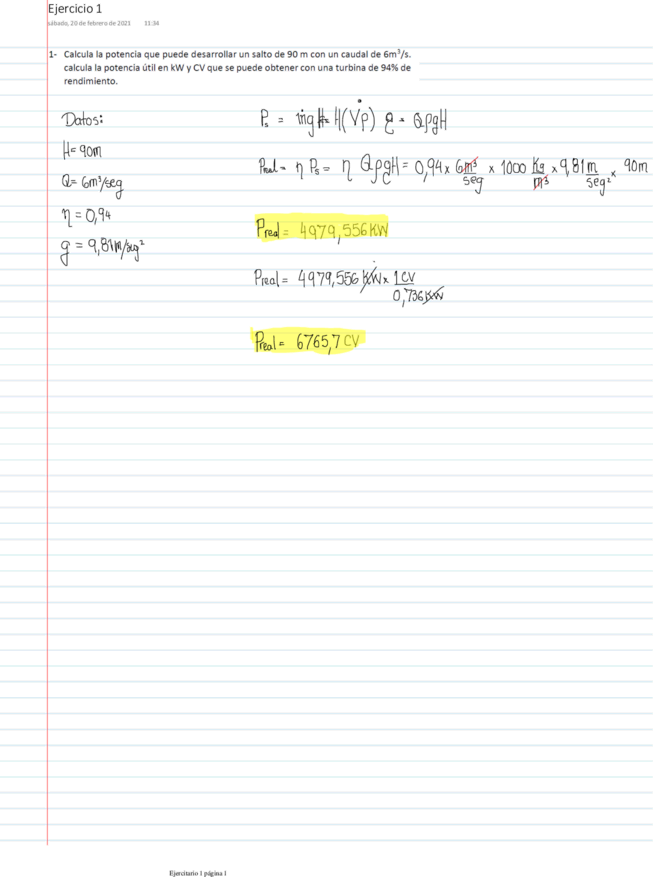 Ejercicio 1
sábado, 20 de febrero de 2021 11:34
1- Calcula la potencia que puede desarrollar un salto de 90 m con un caudal de 6m³/s.
calcula la potencia útil en kW y CV que se puede obtener con una turbina de 94% de
rendimiento.
Datos:
H= 90m
Q= 6m³/seg
η = 0,94
g = 9,81m/seg²
Ps = ṁgH= H(V̇ρ) g = QρgH
Preal = η Ps = η QρgH = 0,94 x 6 m³/seg x 1000 Kg/m³ x 9,81 m/seg² x 90m
Preal = 4979,556 KW
Preal = 4979,556 KW x 1CV/0,736KW
Preal = 6765,7 CV
Ejercitario 1 página 1